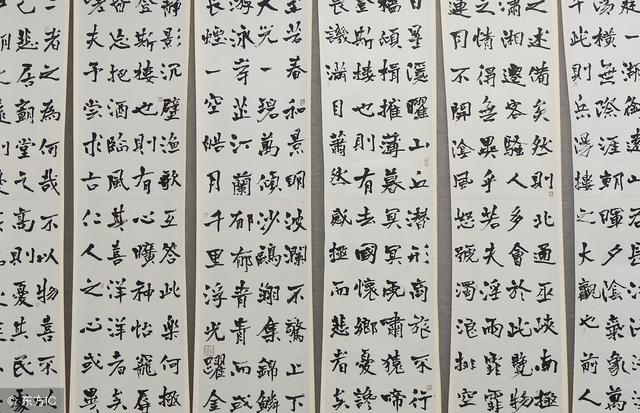 湯橫無際涯朝暉夕陰氣象萬
千此則岳陽樓之大觀也前人
之述備矣然則北通巫峽南極
瀟湘遷客騷人多會於此覽物
之情得無異乎若夫淫雨霏霏
連月不開陰風怒號濁浪排空
日星隱曜山丘潛形商旅不行
檣傾楫摧薄暮冥冥虎嘯猿啼
登斯樓也則有去國懷鄉憂讒
畏譏滿目蕭然感極而悲者矣
至若春和景明波瀾不驚上下
天光一碧萬頃沙鷗翔集錦鱗
游泳岸芷汀蘭郁郁青青而或
長煙一空皓月千里浮光躍金
靜影沉璧漁歌互答此樂何極
登斯樓也則有心曠神怡寵辱
偕忘把酒臨風其喜洋洋者矣
嗟夫予嘗求古仁人之心或異
二者之為何哉不以物喜不
己悲居廟堂之高則憂其民
©东方IC